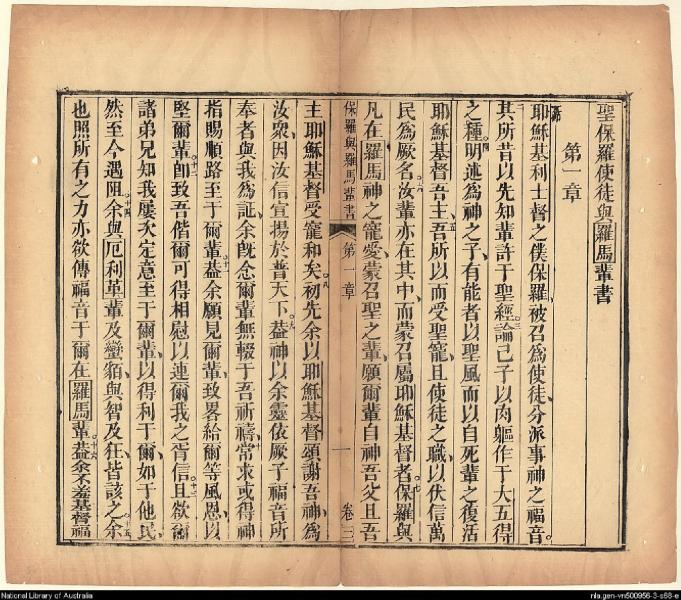 聖保羅使徒與羅馬輩書
第一章
耶穌基利士督之僕保羅、被召為使徒、分派事神之福音。
其所昔以先知輩許于聖經論己子以肉軀作于大五得
之種、明達為神之子、有能者以聖風而以自死輩之復活
耶穌基督吾主、吾所以而受聖寵、且使徒之職、以伏信萬
民為厥名、汝輩亦在其中、而蒙召屬耶穌基督者。保羅與
凡在羅馬神之寵愛、蒙召聖之輩、願爾輩自神吾父且吾
保羅與羅馬輩書 第一章 一 卷三
主耶穌基督受寵和矣。初先余以耶穌基督頌謝吾神、為
汝眾、因汝信宣揚於普天下。蓋神以余靈依厥子福音所
奉者與我為証、余旣念爾輩無輟于吾祈禱、常求或得神
指賜順路至于爾輩。蓋余願見爾輩、致畧給爾等風恩、以
堅爾輩。卽致吾偕爾可得相慰以連爾我之胥信。且欲爾
諸弟兄知我屢次定意至于爾輩、以得利于爾、如于他民、
然至今遇阻。余與厄利革輩及蠻貊、與智及狂、皆該之。余
也照所有之力亦欲傳福音于爾在羅馬輩。蓋余不羞基督福
National Library of Australia
nla.gen-vn500956-3-s68-e